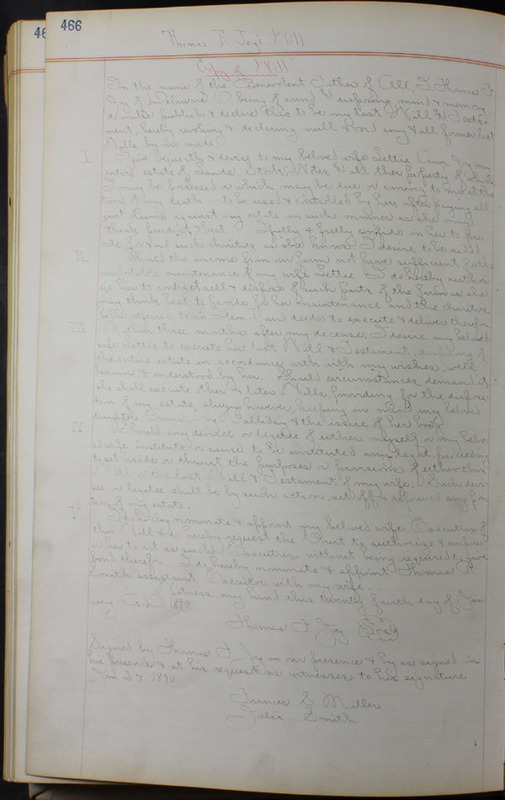 466
Thomas F. Joy's Will
Copy of Will
In the name of the Benevolent Father of All, I, Thomas F.
Joy of Delaware O being of sound & disposing mind & memory
do make publish & declare this to be my last Will & Testa
ment, hereby revoking & declaring null & void any & all former last
Wills by me made.
I I give bequeath & devise to my beloved wife Lettie Joy my
entire estate of Lands, Stock, Notes & all other property of which
I may be possessed or which may be due or coming to me at the
time of my death - to be used & controlled by her, after paying all
just claims against my estate in such manner as she may
think prudent, & that I fully & freely confide in her to
for such charities as she knows I desire to be
II Should the income from farm not prove sufficient for the
comfortable maintenance of my wife Lettie I do hereby author
ize her to contract sell & dispose of such parts of the farm as she
may think best to provide for her maintenance and the charities
herein referred to in Item I and deeds to execute & deliver therefor
III Within three months after my decease, I desire my beloved
wife Lettie to execute her last Will & Testament, disposing of
the entire estate in accordance with my wishes, well
known & understood by her. Should circumstances demand it
she shall execute other & later Wills providing for the disposi
tion of my estate, always however, keeping in mind my beloved
daughter & the issue of her body
IV Should any devisee or legatee of either myself or my belov
ed wife institute or cause to be instituted any legal proceedings
to set aside or thwart the purposes or provisions of either this
Will or the last Will & Testament of my wife, Such devi
see or legatee shall be by such action, cut off & any por
tion of my estate.
V I do hereby nominate & appoint my beloved wife Executrix of
this Will & do hereby request the Court to authorize & empow
er her to act as such Executrix without being required to give
bond therefor. I do hereby nominate & appoint Thomas R.
Smith assistant Executor with my wife
In Witness my hand this twenty fourth day of Jan
uary A.D. 1890.
Thomas F. Joy Seal
Signed by Thomas F. Joy in our presence & by us signed in
his presence & at his request as witnesses to his signature
Jan 24 1890.
Frances E. Miller
Julia Smith